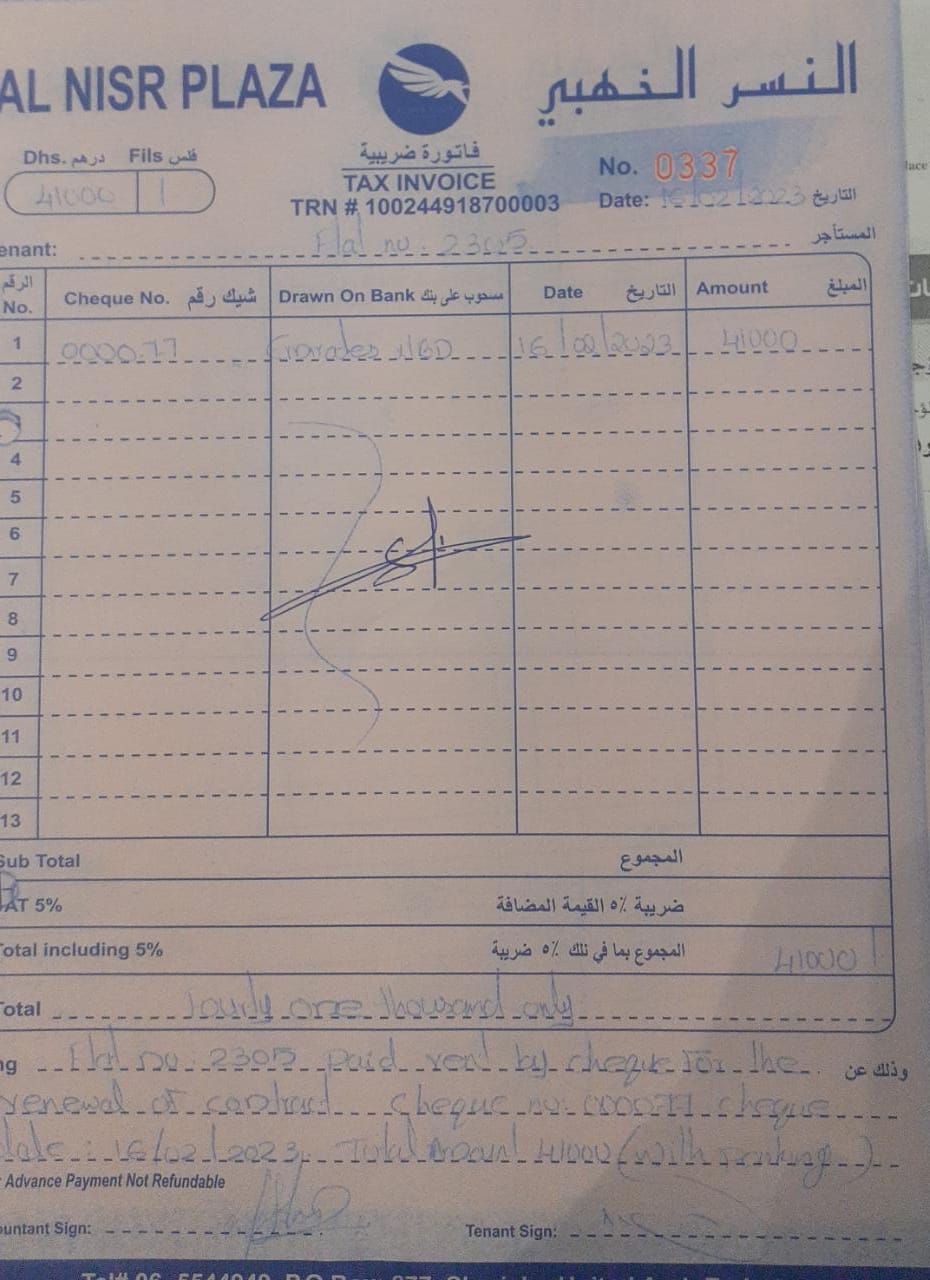 AL NISR PLAZA
النسر الذهبي
Dhs. درهم Fils فلس
41000
فاتورة ضريبية
TAX INVOICE
TRN # 100244918700003
No. 0337
Date: 16/02/2023 التاريخ
enant: Flat no: 2305 المستأجر
الرقم No. Cheque No. شيك رقم Drawn On Bank مسحوب على بنك Date التاريخ Amount المبلغ
1 000077 Emirates NBD 16/02/2023 41000
2
4
5
6
7
8
9
10
11
12
13
Sub Total المجموع
AT 5% ضريبة ٥٪ القيمة المضافة
otal including 5% المجموع بما في ذلك ٥٪ ضريبة 41000
otal Fourty one thousand only
ng Flat no: 2305 paid rent by cheque for the وذلك عن
renewal of contract cheque no: 000077 cheque
date: 16/02/2023 Total Amount 41000 (with parking)
Advance Payment Not Refundable
ountant Sign: Tenant Sign: